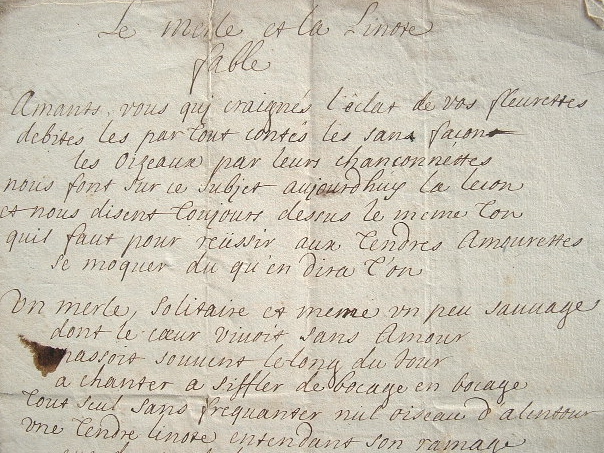 Le merle et la Linote
fable
Amants, vous qui craignés l'éclat de vos fleurettes
debites les partout contés les sans façon
les oizeaux par leurs chançonnéttes
nous font sur ce subjet aujourdhuy la lecon
et nous disent toujours dessus le meme ton
quil faut pour reüssir aux tendres Amourettes
se moquer du qu'en dira t'on
Un merle, solitaire et meme un peu sauuage
dont le cœur viuoit sans Amour
passoit souuent le long du Jour
a chanter a siffler de bocage en bocage
tout seul sans frequanter nul oiseau d'alentour
vne tendre linote entendant son ramage